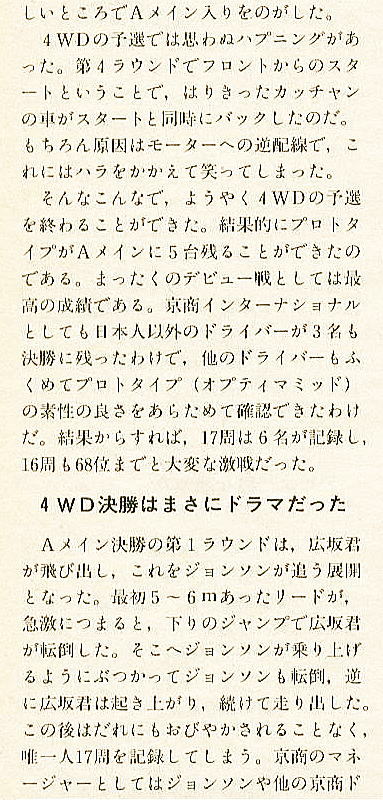 しいところでAメイン入りをのがした。
4WDの予選では思わぬハプニングがあ
った。第4ラウンドでフロントからのスタ
ートということで，はりきったカッチャン
の車がスタートと同時にバックしたのだ。
もちろん原因はモーターへの逆配線で，こ
れにはハラをかかえて笑ってしまった。
そんなこんなで，ようやく4WDの予選
を終わることができた。結果的にプロトタ
イプがAメインに5台残ることができたの
である。まったくのデビュー戦としては最
高の成績である。京商インターナショナル
としても日本人以外のドライバーが3名も
決勝に残ったわけで，他のドライバーもふ
くめてプロトタイプ（オプティマミッド）
の素性の良さをあらためて確認できたわけ
だ。結果からすれば，17周は6名が記録し，
16周も68位までと大変な激戦だった。
4WD決勝はまさにドラマだった
Aメイン決勝の第1ラウンドは，広坂君
が飛び出し，これをジョンソンが追う展開
となった。最初5～6mあったリードが，
急激につまると，下りのジャンプで広坂君
が転倒した。そこへジョンソンが乗り上げ
るようにぶつかってジョンソンも転倒，逆
に広坂君は起き上がり，続けて走り出した。
この後はだれにもおびやかされることなく，
唯一人17周を記録してしまう。京商のマネ
ージャーとしてはジョンソンや他の京商ド